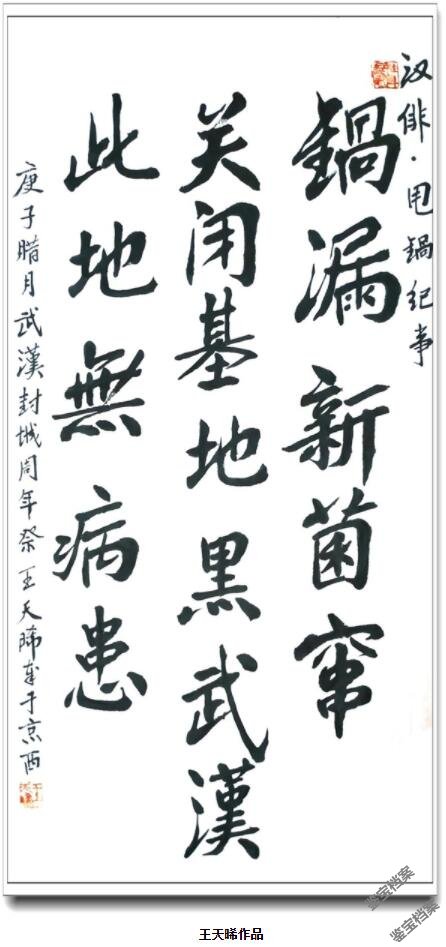 汉俳·甩鍋纪事
鍋漏新菌窜
关闭基地黑武漢
此地無病患
庚子腊月武漢封城周年祭王天晞于京西
王天晞作品
鉴宝档案
鉴宝档案